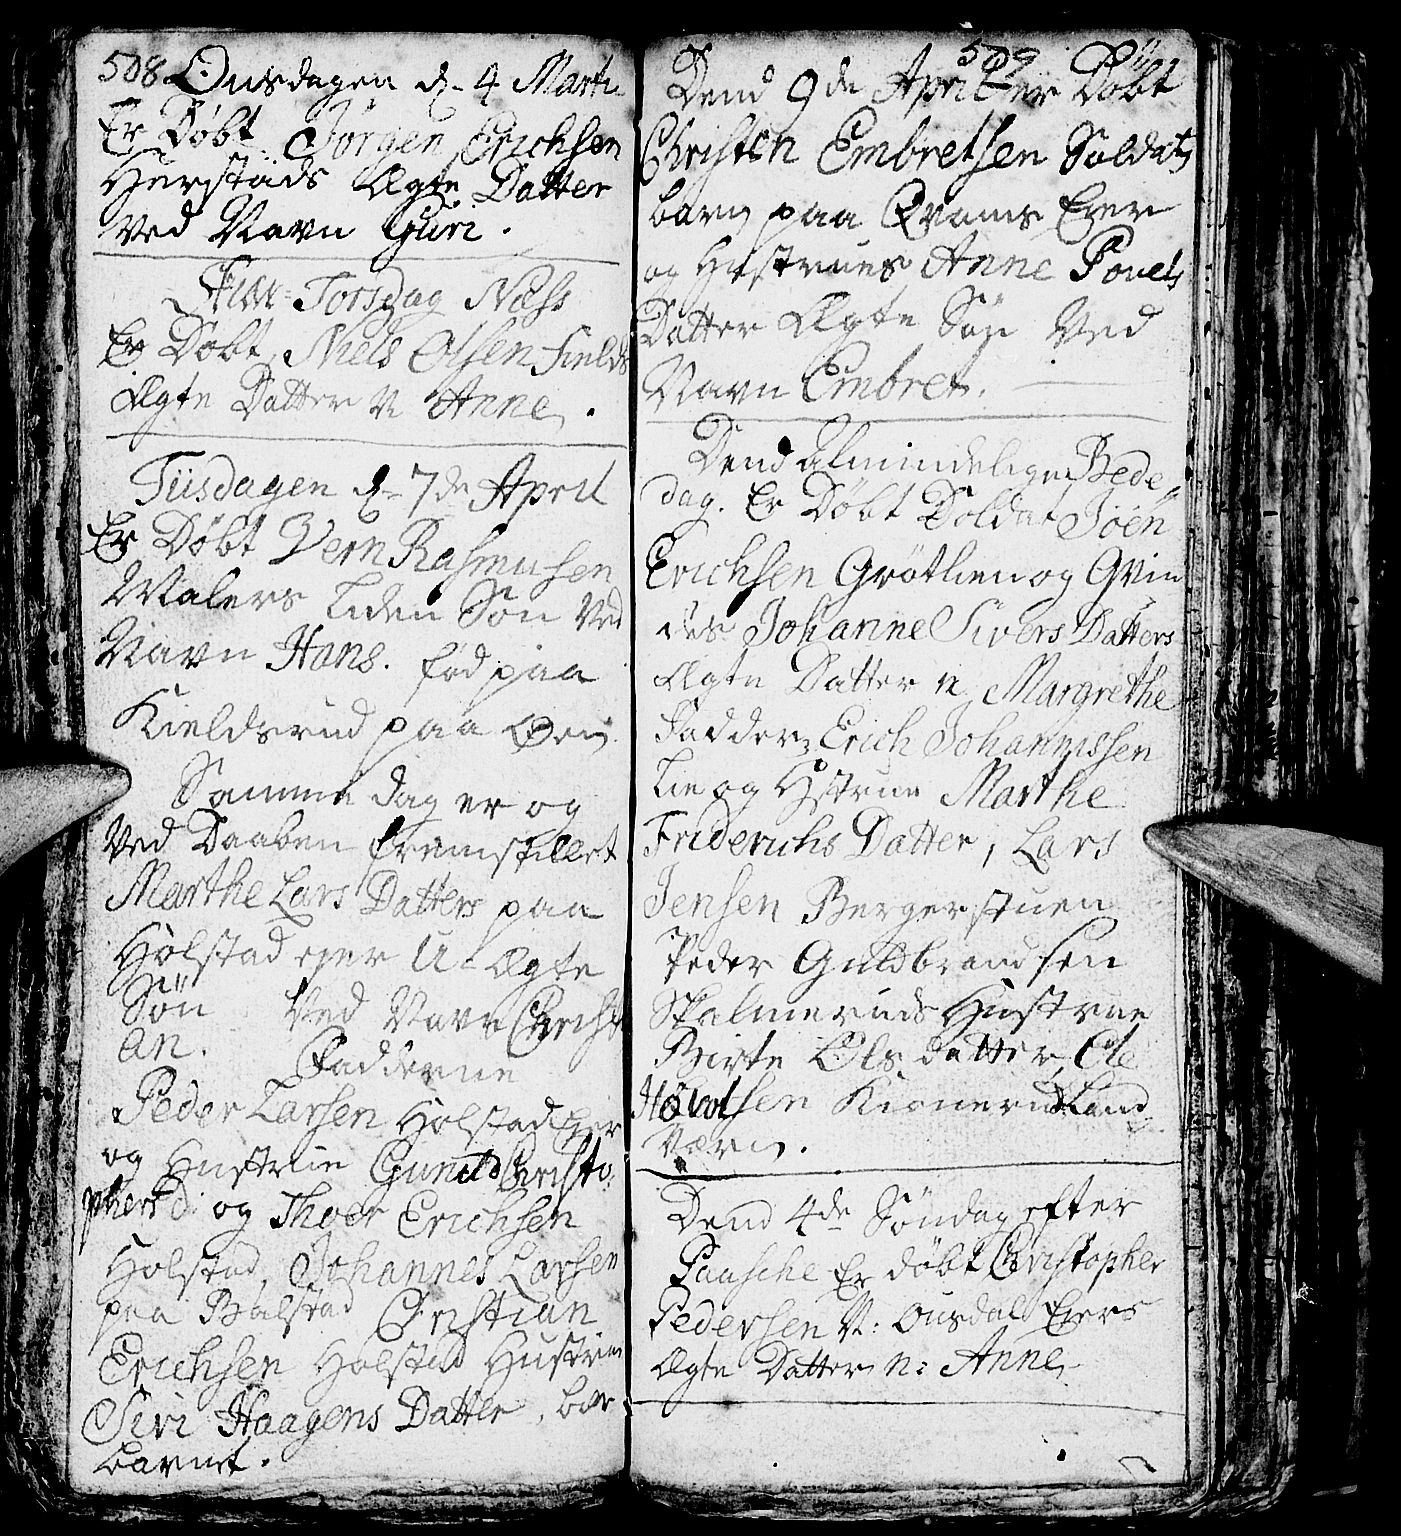 508 Onsdagen d. 4 Marti
Er Døbt Jörgen Erichsen
Herstads Ægte Datter
Ved Navn Guri.
Torsdag Næss
Er Døbt, Niels Olsen Fields
Ægte Datter N Anne.
Tiisdagen d. 7de April
Er Døbt Rasmusen
Malers liden Søn Ved
Navn Hans. fød paa
Kieldsrud paa Øen
Samme dag er og
Ved Daaben fremstillet
Marthe Lars Datters paa
Holstad ejer U-Ægte
Sön Ved Navn Christ
an. Fadderne
Peder Larsen Holstad Ejer
og Hustrue Gunild Christo-
phers D: og Thoer Erichsen
Holstad, Johannes Larsen
paa Balstad Christian
Erichsen Holstad Hustrue
Siri Haagens Datter, bar
barnet.
509
Dend 9de April er Døbt
Christen Embretsen Soldats
barn paa Qvams Ejer
og Hustrues Anne Pouels
Datter Ægte Søn Ved
Navn Embret.
Dend Almindelige Bede-
dag. Er Døbt Soldat Joen
Erichsen Grötlien og Qvin
des Johanne Sivers Datters
Ægte Datter N Margrethe
Faddere Erich Johannissen
Lie og Hustrue Marthe
Friderichs Datter, Lars
Jensen Bergerstuen
Peder Guldbrandsen
Skalmeruds Hustrue
Birte Ols datter, Ole
Halvorsen Land
Værn.
Dend 4de Söndag efter
Paasche Er døbt Christopher
Pedersen N: Ousdal Ejers
Ægte Datter N: Anne